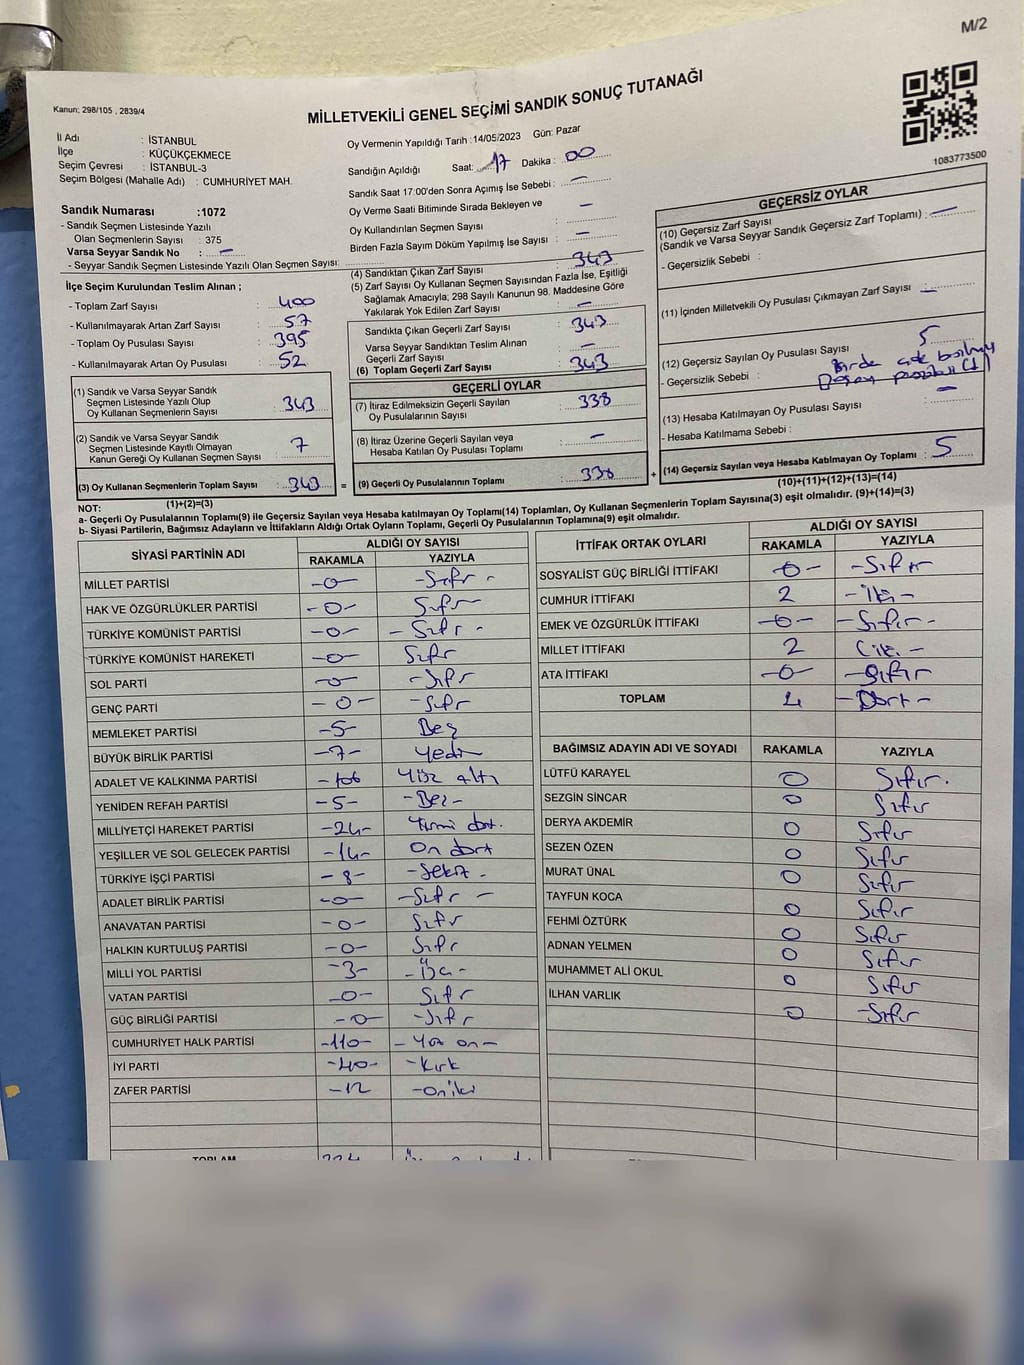 M/2
Kanun; 298/105 , 2839/4
MİLLETVEKİLİ GENEL SEÇİMİ SANDIK SONUÇ TUTANAĞI
1083773500
İl Adı : İSTANBUL
İlçe : KÜÇÜKÇEKMECE
Seçim Çevresi : İSTANBUL-3
Seçim Bölgesi (Mahalle Adı) : CUMHURİYET MAH.
Sandık Numarası :1072
- Sandık Seçmen Listesinde Yazılı
Olan Seçmenlerin Sayısı : 375
Varsa Seyyar Sandık No : -
- Seyyar Sandık Seçmen Listesinde Yazılı Olan Seçmen Sayısı:
Oy Vermenin Yapıldığı Tarih :14/05/2023 Gün: Pazar
Sandığın Açıldığı Saat: 17 Dakika : 00
Sandık Saat 17:00'den Sonra Açımış İse Sebebi : -
Oy Verme Saati Bitiminde Sırada Bekleyen ve -
Oy Kullandırılan Seçmen Sayısı :
Birden Fazla Sayım Döküm Yapılmış İse Sayısı : -
İlçe Seçim Kurulundan Teslim Alınan ;
- Toplam Zarf Sayısı : 400
- Kullanılmayarak Artan Zarf Sayısı : 57
- Toplam Oy Pusulası Sayısı : 395
- Kullanılmayarak Artan Oy Pusulası : 52
(1) Sandık ve Varsa Seyyar Sandık
Seçmen Listesinde Yazılı Olup
Oy Kullanan Seçmenlerin Sayısı : 343
(2) Sandık ve Varsa Seyyar Sandık
Seçmen Listesinde Kayıtlı Olmayan
Kanun Gereği Oy Kullanan Seçmen Sayısı : 7
(3) Oy Kullanan Seçmenlerin Toplam Sayısı : 343 =
(1)+(2)=(3)
(4) Sandıktan Çıkan Zarf Sayısı : 343
(5) Zarf Sayısı Oy Kullanan Seçmen Sayısından Fazla İse, Eşitliği
Sağlamak Amacıyla; 298 Sayılı Kanunun 98. Maddesine Göre
Yakılarak Yok Edilen Zarf Sayısı : -
Sandıkta Çıkan Geçerli Zarf Sayısı : 343
Varsa Seyyar Sandıktan Teslim Alınan
Geçerli Zarf Sayısı : -
(6) Toplam Geçerli Zarf Sayısı : 343
GEÇERLİ OYLAR
(7) İtiraz Edilmeksizin Geçerli Sayılan
Oy Pusulalarının Sayısı : 338
(8) İtiraz Üzerine Geçerli Sayılan veya
Hesaba Katılan Oy Pusulası Toplamı : -
(9) Geçerli Oy Pusulalarının Toplamı : 338 +
GEÇERSİZ OYLAR
(10) Geçersiz Zarf Sayısı
(Sandık ve Varsa Seyyar Sandık Geçersiz Zarf Toplamı) : -
- Geçersizlik Sebebi :
(11) İçinden Milletvekili Oy Pusulası Çıkmayan Zarf Sayısı : -
(12) Geçersiz Sayılan Oy Pusulası Sayısı : 5
- Geçersizlik Sebebi :
(13) Hesaba Katılmayan Oy Pusulası Sayısı : -
- Hesaba Katılmama Sebebi :
(14) Geçersiz Sayılan veya Hesaba Katılmayan Oy Toplamı : 5
(10)+(11)+(12)+(13)=(14)
NOT:
a- Geçerli Oy Pusulalarının Toplamı(9) ile Geçersiz Sayılan veya Hesaba katılmayan Oy Toplamı(14) Toplamları, Oy Kullanan Seçmenlerin Toplam Sayısına(3) eşit olmalıdır. (9)+(14)=(3)
b- Siyasi Partilerin, Bağımsız Adayların ve İttifakların Aldığı Ortak Oyların Toplamı, Geçerli Oy Pusulalarının Toplamına(9) eşit olmalıdır.
SİYASİ PARTİNİN ADI ALDIĞI OY SAYISI
RAKAMLA YAZIYLA
MİLLET PARTİSİ -0- -Sıfır-
HAK VE ÖZGÜRLÜKLER PARTİSİ -0- Sıfır
TÜRKİYE KOMÜNİST PARTİSİ -0- -Sıfır-
TÜRKİYE KOMÜNİST HAREKETİ -0- Sıfır
SOL PARTİ -0- -Sıfır
GENÇ PARTİ -0- -Sıfır
MEMLEKET PARTİSİ -5- Beş
BÜYÜK BİRLİK PARTİSİ -7- Yedi
ADALET VE KALKINMA PARTİSİ -106 Yüz altı
YENİDEN REFAH PARTİSİ -5- -Beş-
MİLLİYETÇİ HAREKET PARTİSİ -24- Yirmi dört.
YEŞİLLER VE SOL GELECEK PARTİSİ -14- On dört
TÜRKİYE İŞÇİ PARTİSİ -8- -Sekiz-
ADALET BİRLİK PARTİSİ -0- -Sıfır-
ANAVATAN PARTİSİ -0- Sıfır
HALKIN KURTULUŞ PARTİSİ -0- Sıfır
MİLLİ YOL PARTİSİ -3- -Üç-
VATAN PARTİSİ -0- Sıfır
GÜÇ BİRLİĞİ PARTİSİ -0- -Sıfır
CUMHURİYET HALK PARTİSİ -110- -Yüz on-
İYİ PARTİ -40- -Kırk
ZAFER PARTİSİ -12 -Oniki
TOPLAM 334
İTTİFAK ORTAK OYLARI ALDIĞI OY SAYISI
RAKAMLA YAZIYLA
SOSYALİST GÜÇ BİRLİĞİ İTTİFAKI -0- -Sıfır
CUMHUR İTTİFAKI 2 -İki-
EMEK VE ÖZGÜRLÜK İTTİFAKI -0- -Sıfır-
MİLLET İTTİFAKI 2 İki-
ATA İTTİFAKI -0- -Sıfır
TOPLAM 4 -Dört-
BAĞIMSIZ ADAYIN ADI VE SOYADI RAKAMLA YAZIYLA
LÜTFÜ KARAYEL 0 Sıfır.
SEZGİN SİNCAR 0 Sıfır
DERYA AKDEMİR 0 Sıfır
SEZEN ÖZEN 0 Sıfır
MURAT ÜNAL 0 Sıfır
TAYFUN KOCA 0 Sıfır
FEHMİ ÖZTÜRK 0 Sıfır
ADNAN YELMEN 0 Sıfır
MUHAMMET ALİ OKUL 0 Sıfır
İLHAN VARLIK 0 -Sıfır